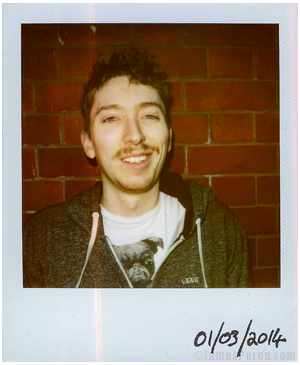 VANS
01/03/2014
©JamesPerou.com